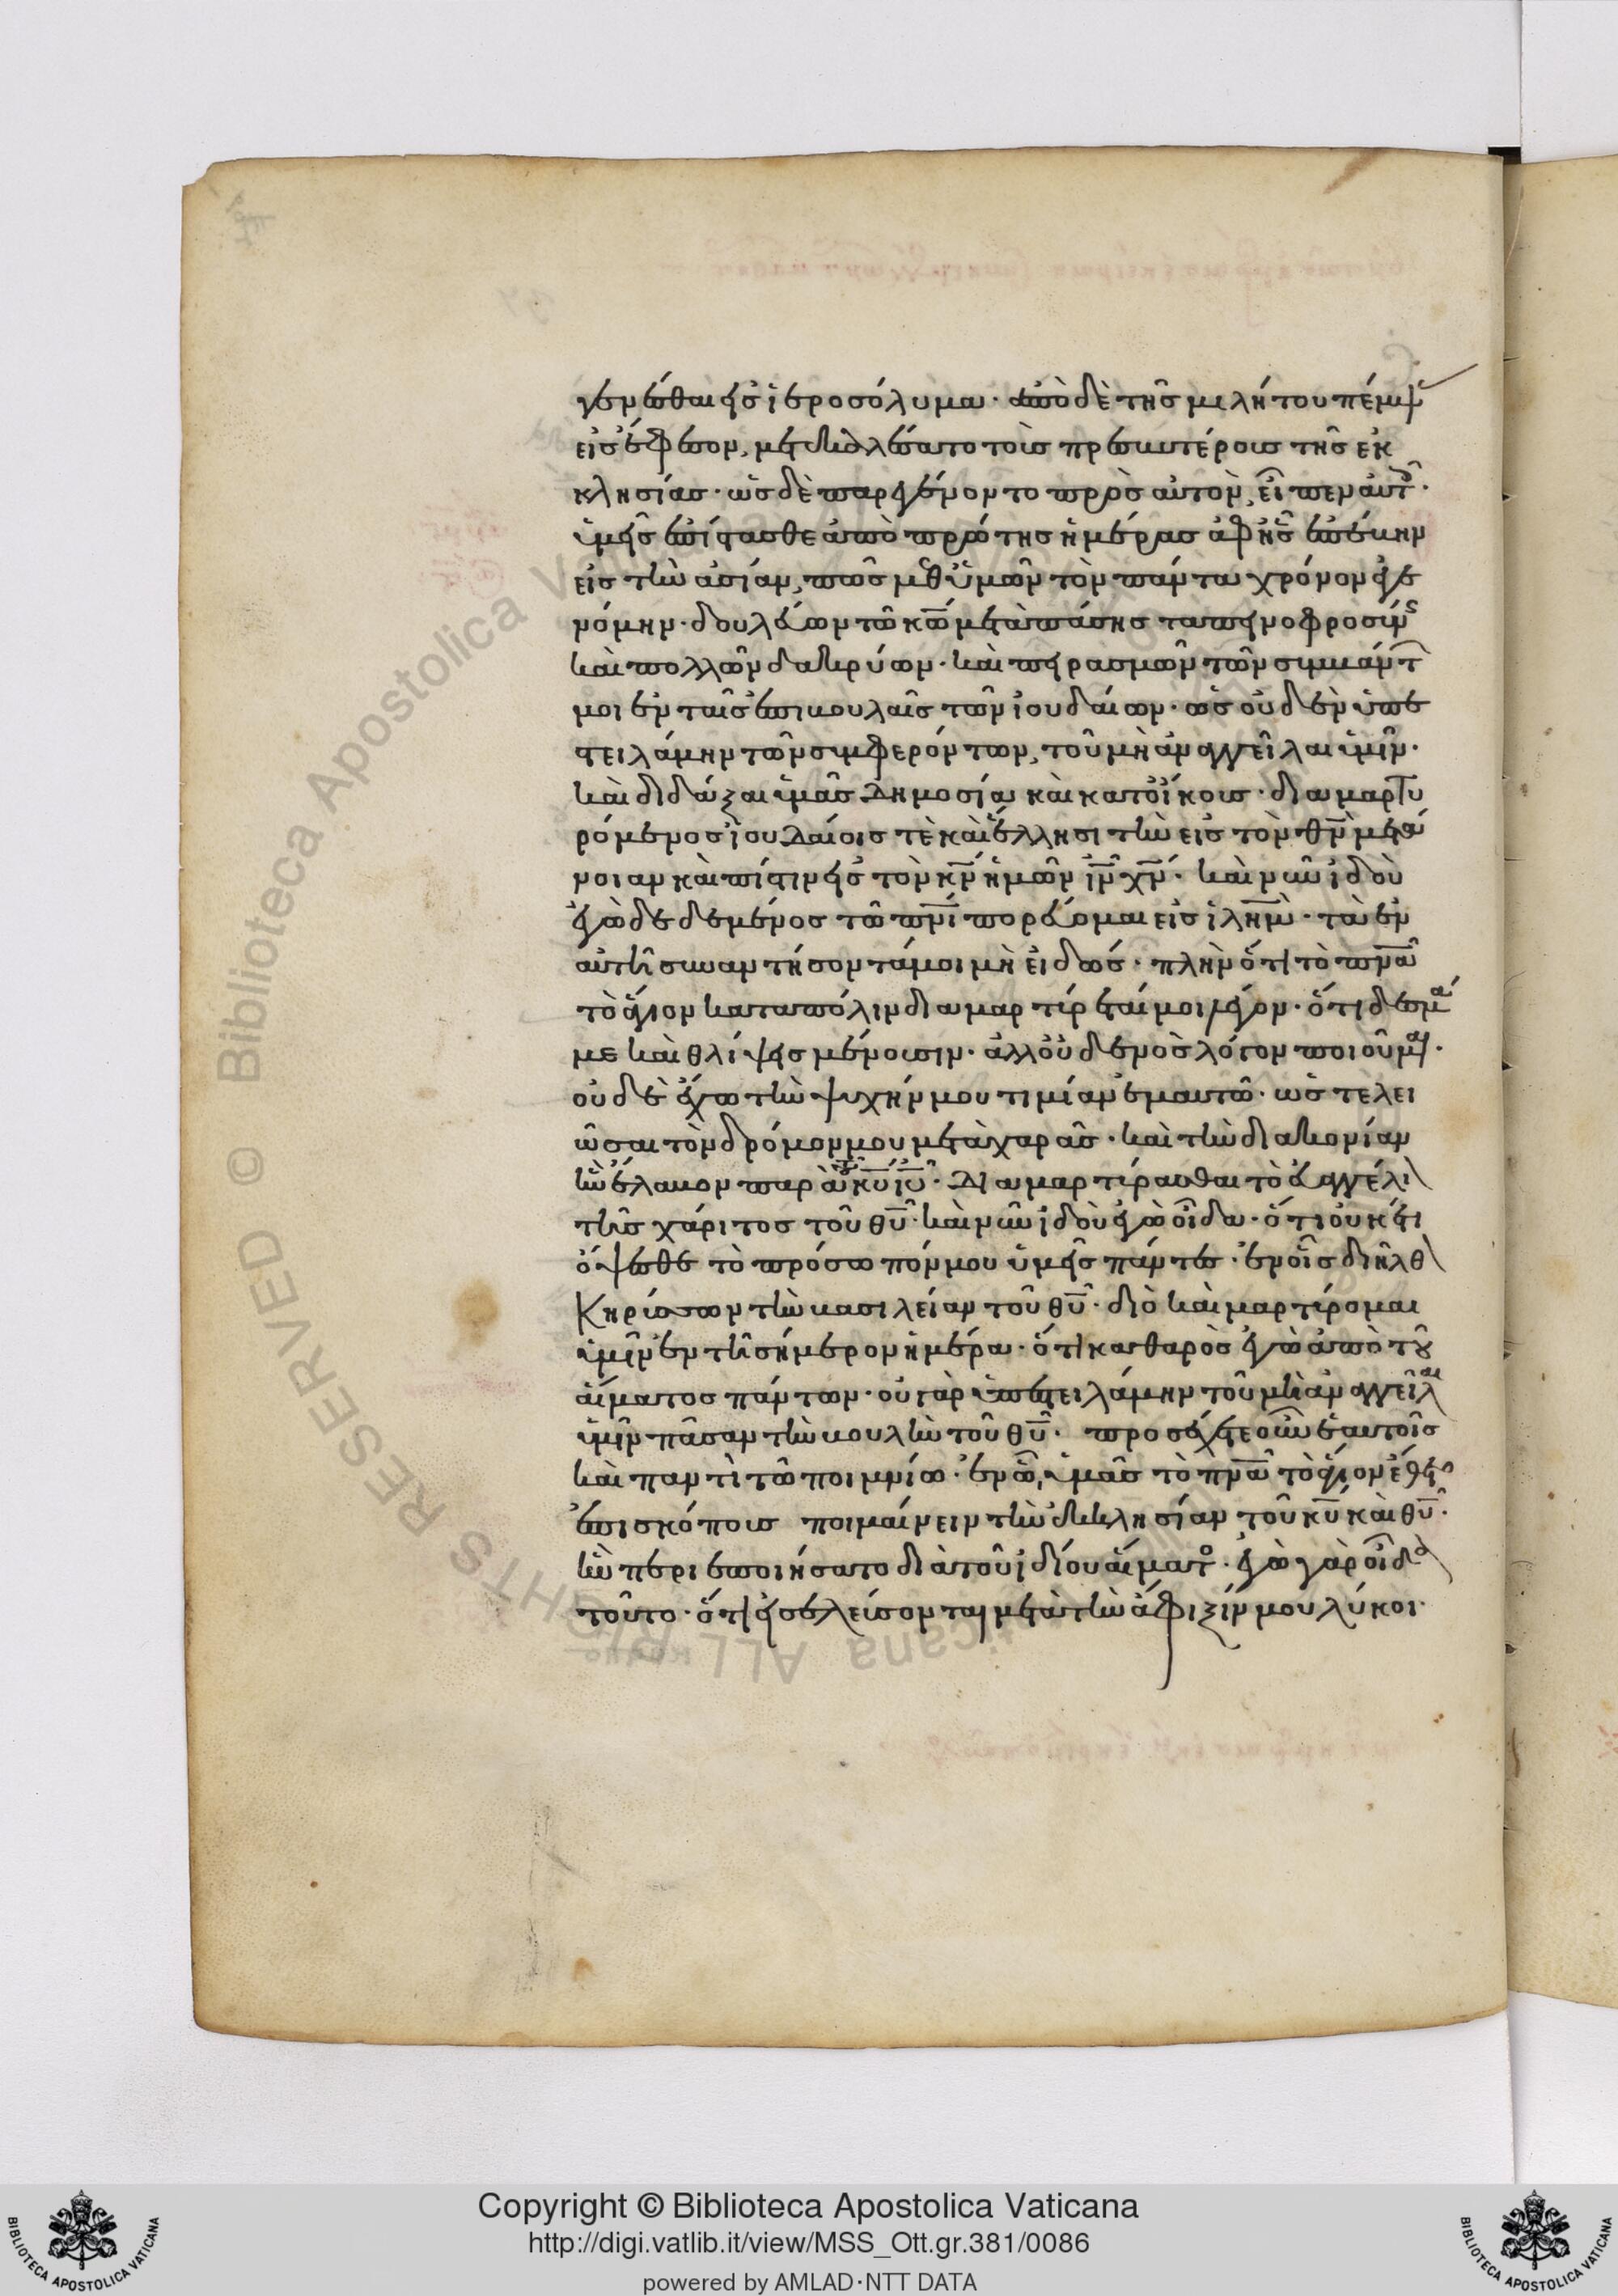 γενέσθαι εἰς ἱεροσόλυμα· ἀπὸ δὲ τῆς μιλήτου πέμψ
εἰς ἔφεσον, μετεκαλέσατο τοὺς πρεσβυτέρους τῆς ἐκ
κλησίας· ὡς δὲ παρεγένοντο πρὸς αὐτὸν, εἶπεν αὐτοῖς·
ὑμεῖς ἐπίστασθε ἀπὸ πρώτης ἡμέρας ἀφ' ἧς ἐπέβην
εἰς τὴν ἀσίαν, πῶς μεθ' ὑμῶν τὸν πάντα χρόνον ἐγε
νόμην· δουλεύων τῶ κ̅ω̅ μετὰ πάσης ταπεινοφροσύνης
καὶ πολλῶν δακρύων· καὶ πειρασμῶν τῶν συμβάντ
μοι ἐν ταῖς ἐπιβουλαῖς τῶν ἰουδαίων· ὡς οὐδὲν ὑπε
στειλάμην τῶν συμφερόντων, τοῦ μὴ ἀναγγεῖλαι ὑμῖν·
καὶ διδάξαι ὑμᾶς δημοσία καὶ κατοίκους· διαμαρτυ
ρόμενος ἰουδαίοις τὲ καὶ ἕλλησι τὴν εἰς τὸν θ̅ν̅ μετά
νοιαν καὶ πίστιν εἰς τὸν κ̅ν̅ ἡμῶν ι̅ν̅ χ̅ν̅· καὶ νῦν ἰδοὺ
ἐγὼ δεδεμένος τῶ π̅ν̅ι̅ πορεύομαι εἰς ἰλη̅μ̅· τὰ ἐν
αὐτῆ συναντήσοντά μοι μὴ εἰδώς· πλὴν ὅτι τὸ π̅ν̅α̅
τὸ ἅγιον κατα πόλιν διαμαρτύρεταί μοι λέγον· ὅτι δεσμά
με καὶ θλίψεις μένουσιν· ἀλλ' οὐδενὸς λόγον ποιοῦμαι·
οὐδὲ ἔχω τὴν ψυχήν μου τιμίαν ἐμαυτῶ· ὡς τελει
ῶσαι τὸν δρόμον μου μετὰ χαρᾶς· καὶ τὴν διακονίαν
ἣν ἔλαβον παρὰ τοῦ κ̅υ̅ ι̅υ̅· διαμαρτύρασθαι τὸ εὐαγγέλι
τῆς χάριτος τοῦ θ̅υ̅· καὶ νῦν ἰδοὺ ἐγὼ οἶδα· ὅτι οὐκέτι
ὄψεσθε τὸ πρόσωπόν μου ὑμεῖς πάντες· ἐν οἷς διῆλθ
κηρύσσων τὴν βασιλείαν τοῦ θ̅υ̅· διὸ καὶ μαρτύρομαι
ὑμῖν ἐν τῆ σήμερον ἡμέρα· ὅτι καθαρὸς ἐγὼ ἀπὸ τοῦ
αἵματος πάντων· οὐ γὰρ ὑπεστειλάμην τοῦ μὴ ἀναγγεῖλαι
ὑμῖν πᾶσαν τὴν βουλὴν τοῦ θ̅υ̅· προσέχετε οὖν ἑαυτοῖς
καὶ παντὶ τῶ ποιμνίω· ἐν ὧ, ὑμᾶς τὸ π̅ν̅α̅ τὸ ἅγιον ἔθετο
ἐπισκόπους ποιμαίνειν τὴν ἐκκλησίαν τοῦ κ̅υ̅ καὶ θ̅υ̅·
ἣν περιεποιήσατο διὰ τοῦ ἰδίου αἵματος· ἐγὼ γὰρ οἶδα
τοῦτο· ὅτι εἰσελεύσονται μετὰ τὴν ἄφιξίν μου λύκοι·
Copyright © Biblioteca Apostolica Vaticana
http://digi.vatlib.it/view/MSS_Ott.gr.381/0086
powered by AMLAD·NTT DATA